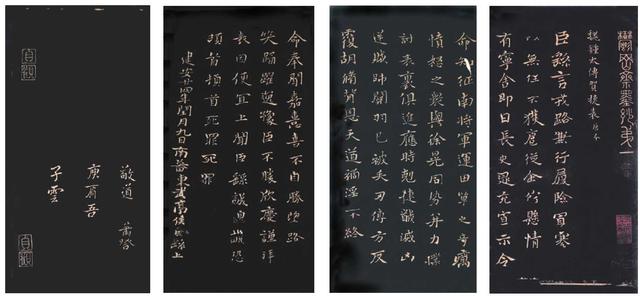 鬱岡齋墨妙第一
魏鍾太傅賀捷表
臣繇言戎路兼行履險冒寒
以無任不獲扈從企佇懸情
有寧舍即日長史逯充宣示令
命知征南將軍運田單之奇厲
憤怒之衆與徐晃同勢并力撲
討表裏俱進應時剋捷馘滅凶
逆賊帥關羽已被矢刃傅方反
覆胡脩背恩天道禍淫不終
命奉聞嘉憙喜不自勝望路
笑踊躍逸豫臣不勝欣慶謹拜
表因便宜上聞臣繇誠惶誠恐
頓首頓首死罪死罪
建安廿四年閏月九日南蕃東武亭侯臣繇上
敬道
庾肩吾
子雲
貞觀
貞觀